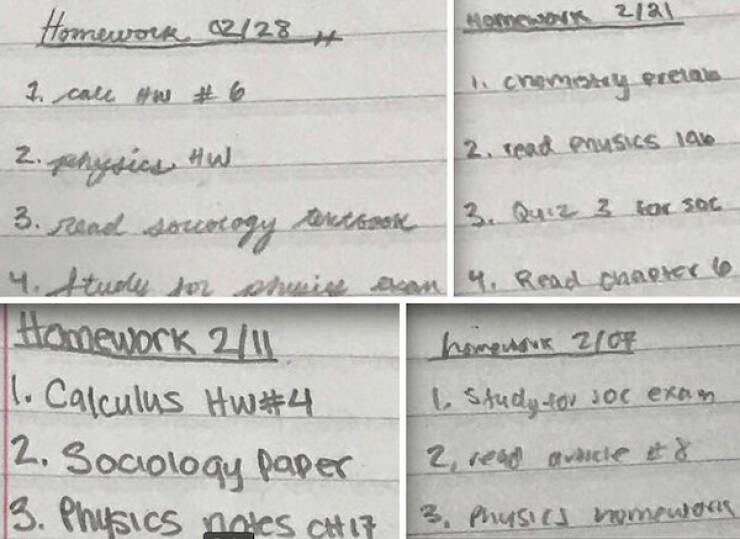 Homework 02/28
1. calc HW # 6
2. physics HW
3. Read sociology textbook
4. Study for physics exam
Homework 2/21
1. chemistry prelab
2. read physics lab
3. Quiz 3 for soc
4. Read chapter 6
Homework 2/11
1. Calculus HW#4
2. Sociology paper
3. Physics notes CH17
homework 2/07
1. Study for soc exam
2, read article # 8
3. Physics homework